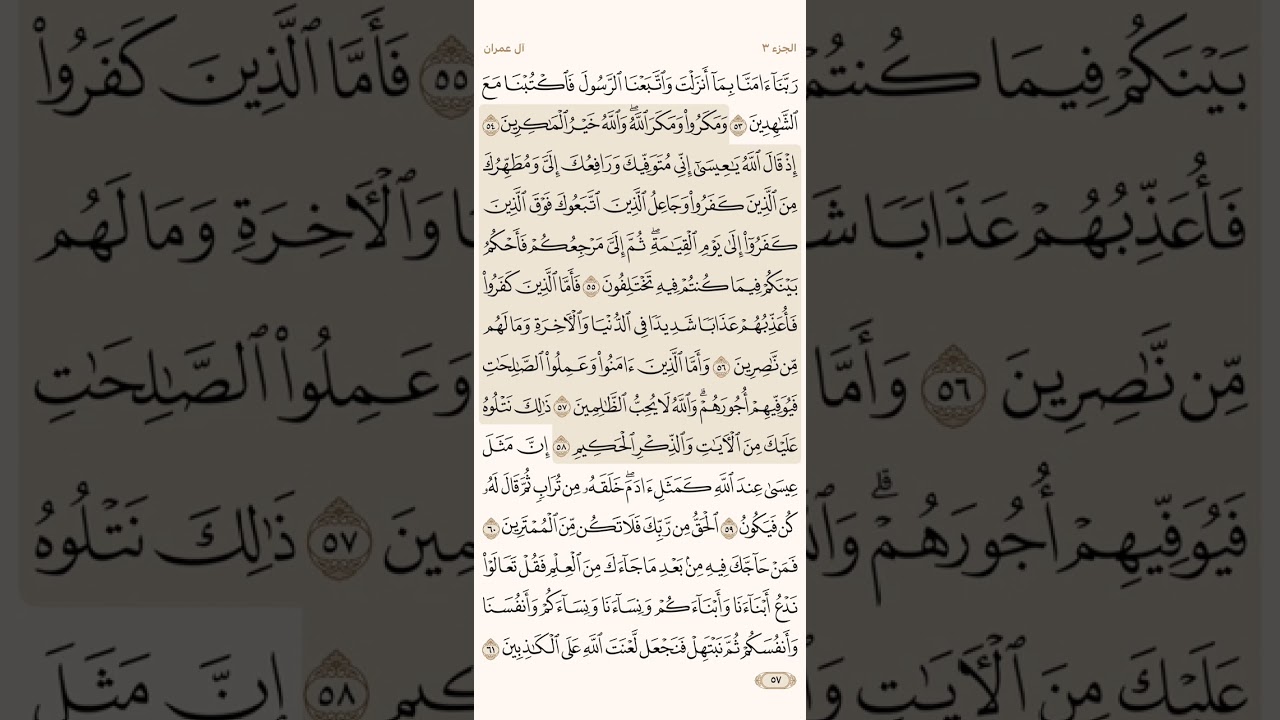 الجزء ٣
آل عمران
رَبَّنَآ ءَامَنَّا بِمَآ أَنزَلْتَ وَٱتَّبَعْنَا ٱلرَّسُولَ فَٱكْتُبْنَا مَعَ
ٱلشَّٰهِدِينَ ٥٣ وَمَكَرُوا۟ وَمَكَرَ ٱللَّهُ ۖ وَٱللَّهُ خَيْرُ ٱلْمَٰكِرِينَ ٥٤
إِذْ قَالَ ٱللَّهُ يَٰعِيسَىٰٓ إِنِّى مُتَوَفِّيكَ وَرَافِعُكَ إِلَىَّ وَمُطَهِّرُكَ
مِنَ ٱلَّذِينَ كَفَرُوا۟ وَجَاعِلُ ٱلَّذِينَ ٱتَّبَعُوكَ فَوْقَ ٱلَّذِينَ
كَفَرُوٓا۟ إِلَىٰ يَوْمِ ٱلْقِيَٰمَةِ ۖ ثُمَّ إِلَىَّ مَرْجِعُكُمْ فَأَحْكُمُ
بَيْنَكُمْ فِيمَا كُنتُمْ فِيهِ تَخْتَلِفُونَ ٥٥ فَأَمَّا ٱلَّذِينَ كَفَرُوا۟
فَأُعَذِّبُهُمْ عَذَابًا شَدِيدًا فِى ٱلدُّنْيَا وَٱلْءَاخِرَةِ وَمَا لَهُم
مِّن نَّٰصِرِينَ ٥٦ وَأَمَّا ٱلَّذِينَ ءَامَنُوا۟ وَعَمِلُوا۟ ٱلصَّٰلِحَٰتِ
فَيُوَفِّيهِمْ أُجُورَهُمْ ۗ وَٱللَّهُ لَا يُحِبُّ ٱلظَّٰلِمِينَ ٥٧ ذَٰلِكَ نَتْلُوهُ
عَلَيْكَ مِنَ ٱلْءَايَٰتِ وَٱلذِّكْرِ ٱلْحَكِيمِ ٥٨ إِنَّ مَثَلَ
عِيسَىٰ عِندَ ٱللَّهِ كَمَثَلِ ءَادَمَ ۖ خَلَقَهُۥ مِن تُرَابٍ ثُمَّ قَالَ لَهُۥ
كُن فَيَكُونُ ٥٩ ٱلْحَقُّ مِن رَّبِّكَ فَلَا تَكُن مِّنَ ٱلْمُمْتَرِينَ ٦٠
فَمَنْ حَآجَّكَ فِيهِ مِنۢ بَعْدِ مَا جَآءَكَ مِنَ ٱلْعِلْمِ فَقُلْ تَعَالَوْا۟
نَدْعُ أَبْنَآءَنَا وَأَبْنَآءَكُمْ وَنِسَآءَنَا وَنِسَآءَكُمْ وَأَنفُسَنَا
وَأَنفُسَكُمْ ثُمَّ نَبْتَهِلْ فَنَجْعَل لَّعْنَتَ ٱللَّهِ عَلَى ٱلْكَٰذِبِينَ ٦١
٥٧
بَيْنَكُمْ فِيمَا كُنتُمْ
٥٥ فَأَمَّا ٱلَّذِينَ كَفَرُوا۟
فَأُعَذِّبُهُمْ عَذَابًا
وَٱلْءَاخِرَةِ وَمَا لَهُم
مِّن نَّٰصِرِينَ ٥٦ وَأَمَّا
وَعَمِلُوا۟ ٱلصَّٰلِحَٰتِ
فَيُوَفِّيهِمْ أُجُورَهُمْ ۗ
٥٧ ذَٰلِكَ نَتْلُوهُ
عَلَيْكَ مِنَ ٱلْءَايَٰتِ
٥٨ إِنَّ مَثَلَ